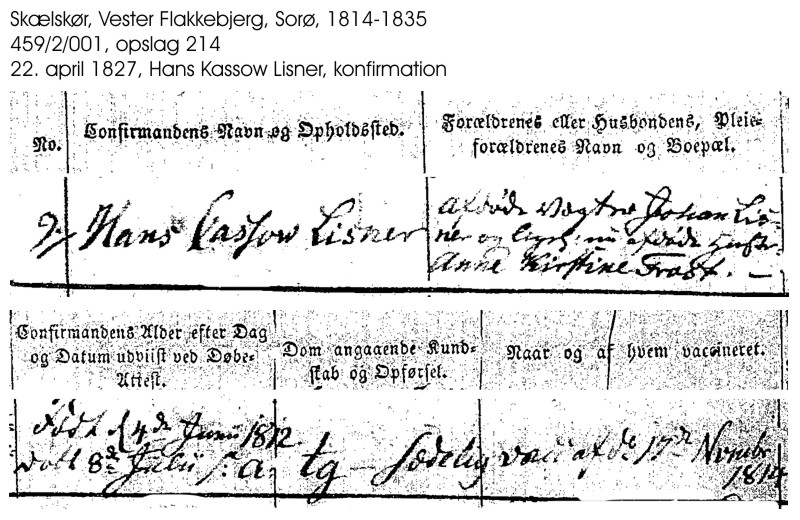 Skælskør, Vester Flakkebjerg, Sorø, 1814-1835
459/2/001, opslag 214
22. april 1827, Hans Kassow Lisner, konfirmation
No.
Confirmandens Navn og Opholdssted.
Forældrenes eller Husbondens, Pleie-
forældrenes Navn og Boepæl.
Hans Cassow Lisner
afdøde Vægter Johan Lis-
ner og afdøde
Anne Kirstine Frost. –
Confirmandens Alder efter Dag
og Datum udviist ved Døbe-
Attest.
Dom angaaende Kund-
skab og Opførsel.
Naar og af hvem vaccineret.
Født d 4de Junii 1812
døbt 8de Julii s: a:
tg – Sædelig
vacc af d: 17de Novembr
1814